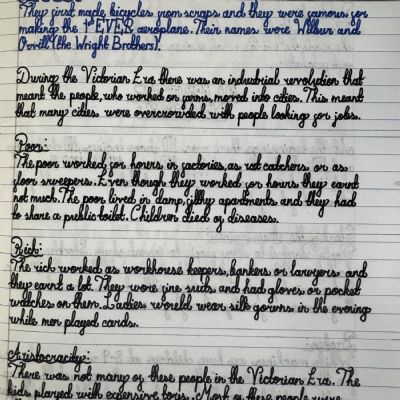 They first made bicycles from scraps and they were famous for
making the 1st EVER aeroplane. Their names were Wilbur and
Orvill (the Wright Brothers).
During the Victorian Era there was an industrial revolution that
meant the people, who worked on farms, moved into cities. This meant
that many cities were overcrowded with people looking for jobs.
Poor:
The poor worked for horers in factories, as rat catchers or as
floor sweepers. Even though they worked for hours they earnt
not much. The poor lived in damp, filthy apartments and they had
to share a public toilet. Children died of diseases.
Rich:
The rich worked as workhouse keepers, bankers or lawyers and
they earnt a lot. They wore fine suits and had gloves or pocket
watches on them. Ladies would wear silk gowns in the evening
while men played cards.
Aristocracity:
There was not many of these people in the Victorian Era. The
kids played with expensive toys. Most of these people were